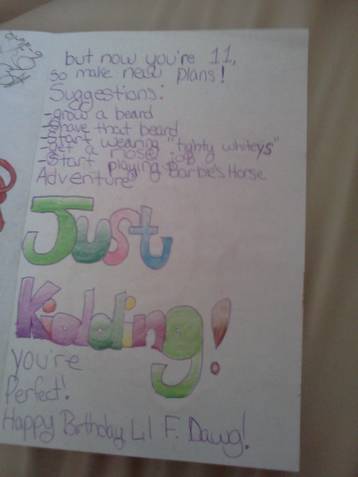 but now you're 11,
so make new plans!
Suggestions:
-grow a beard
-shave that beard
-start wearing "tighty whiteys"
-get a nose job
-start playing Barbie's Horse
Adventure
Just
Kidding!
you're
perfect!
Happy Birthday Lil F. Dawg!